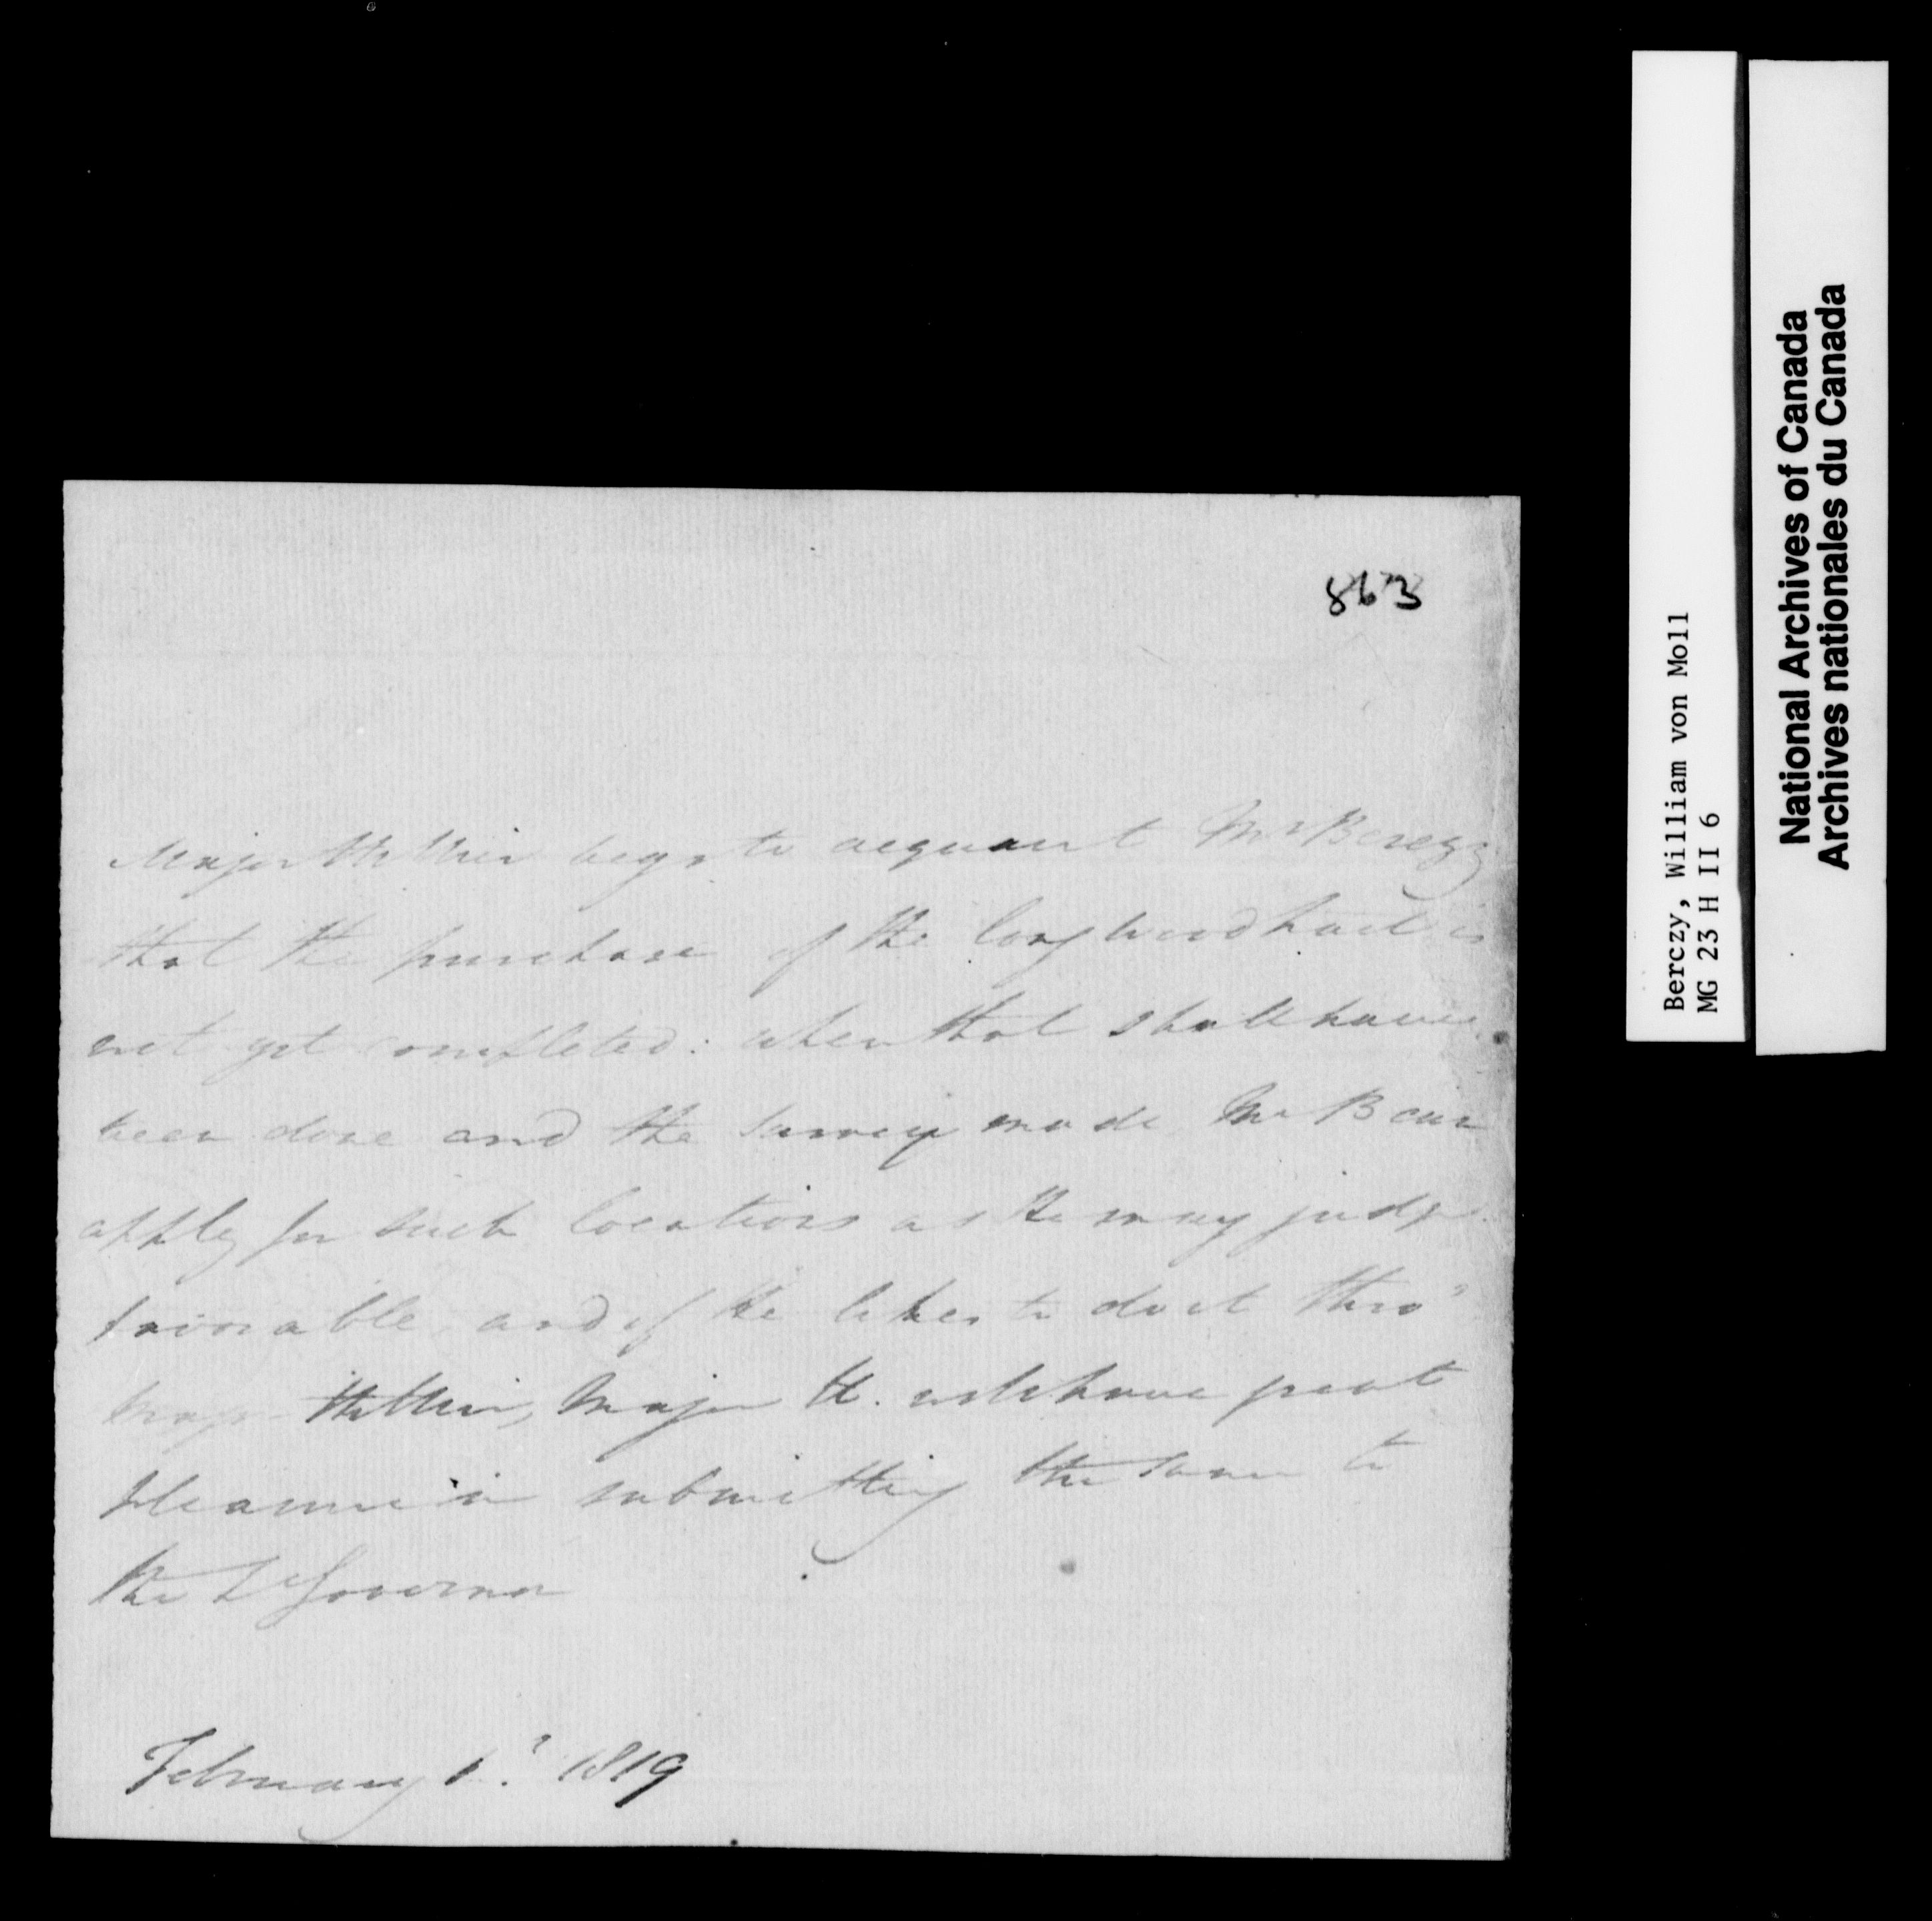 863
Major Hillier begs to acquaint Mr Berczy
that the purchase of the longwood tract is
not yet completed: when that shall have
been done and the survey made Mr B can
apply for such locations as he may judge
favorable, and if he likes to do it thro'
Major Hillier, Major H. will have great
pleasure in submitting the same to
the Lt Governor
February 1st 1819
Berczy, William von Moll
MG 23 H II 6
National Archives of Canada
Archives nationales du Canada